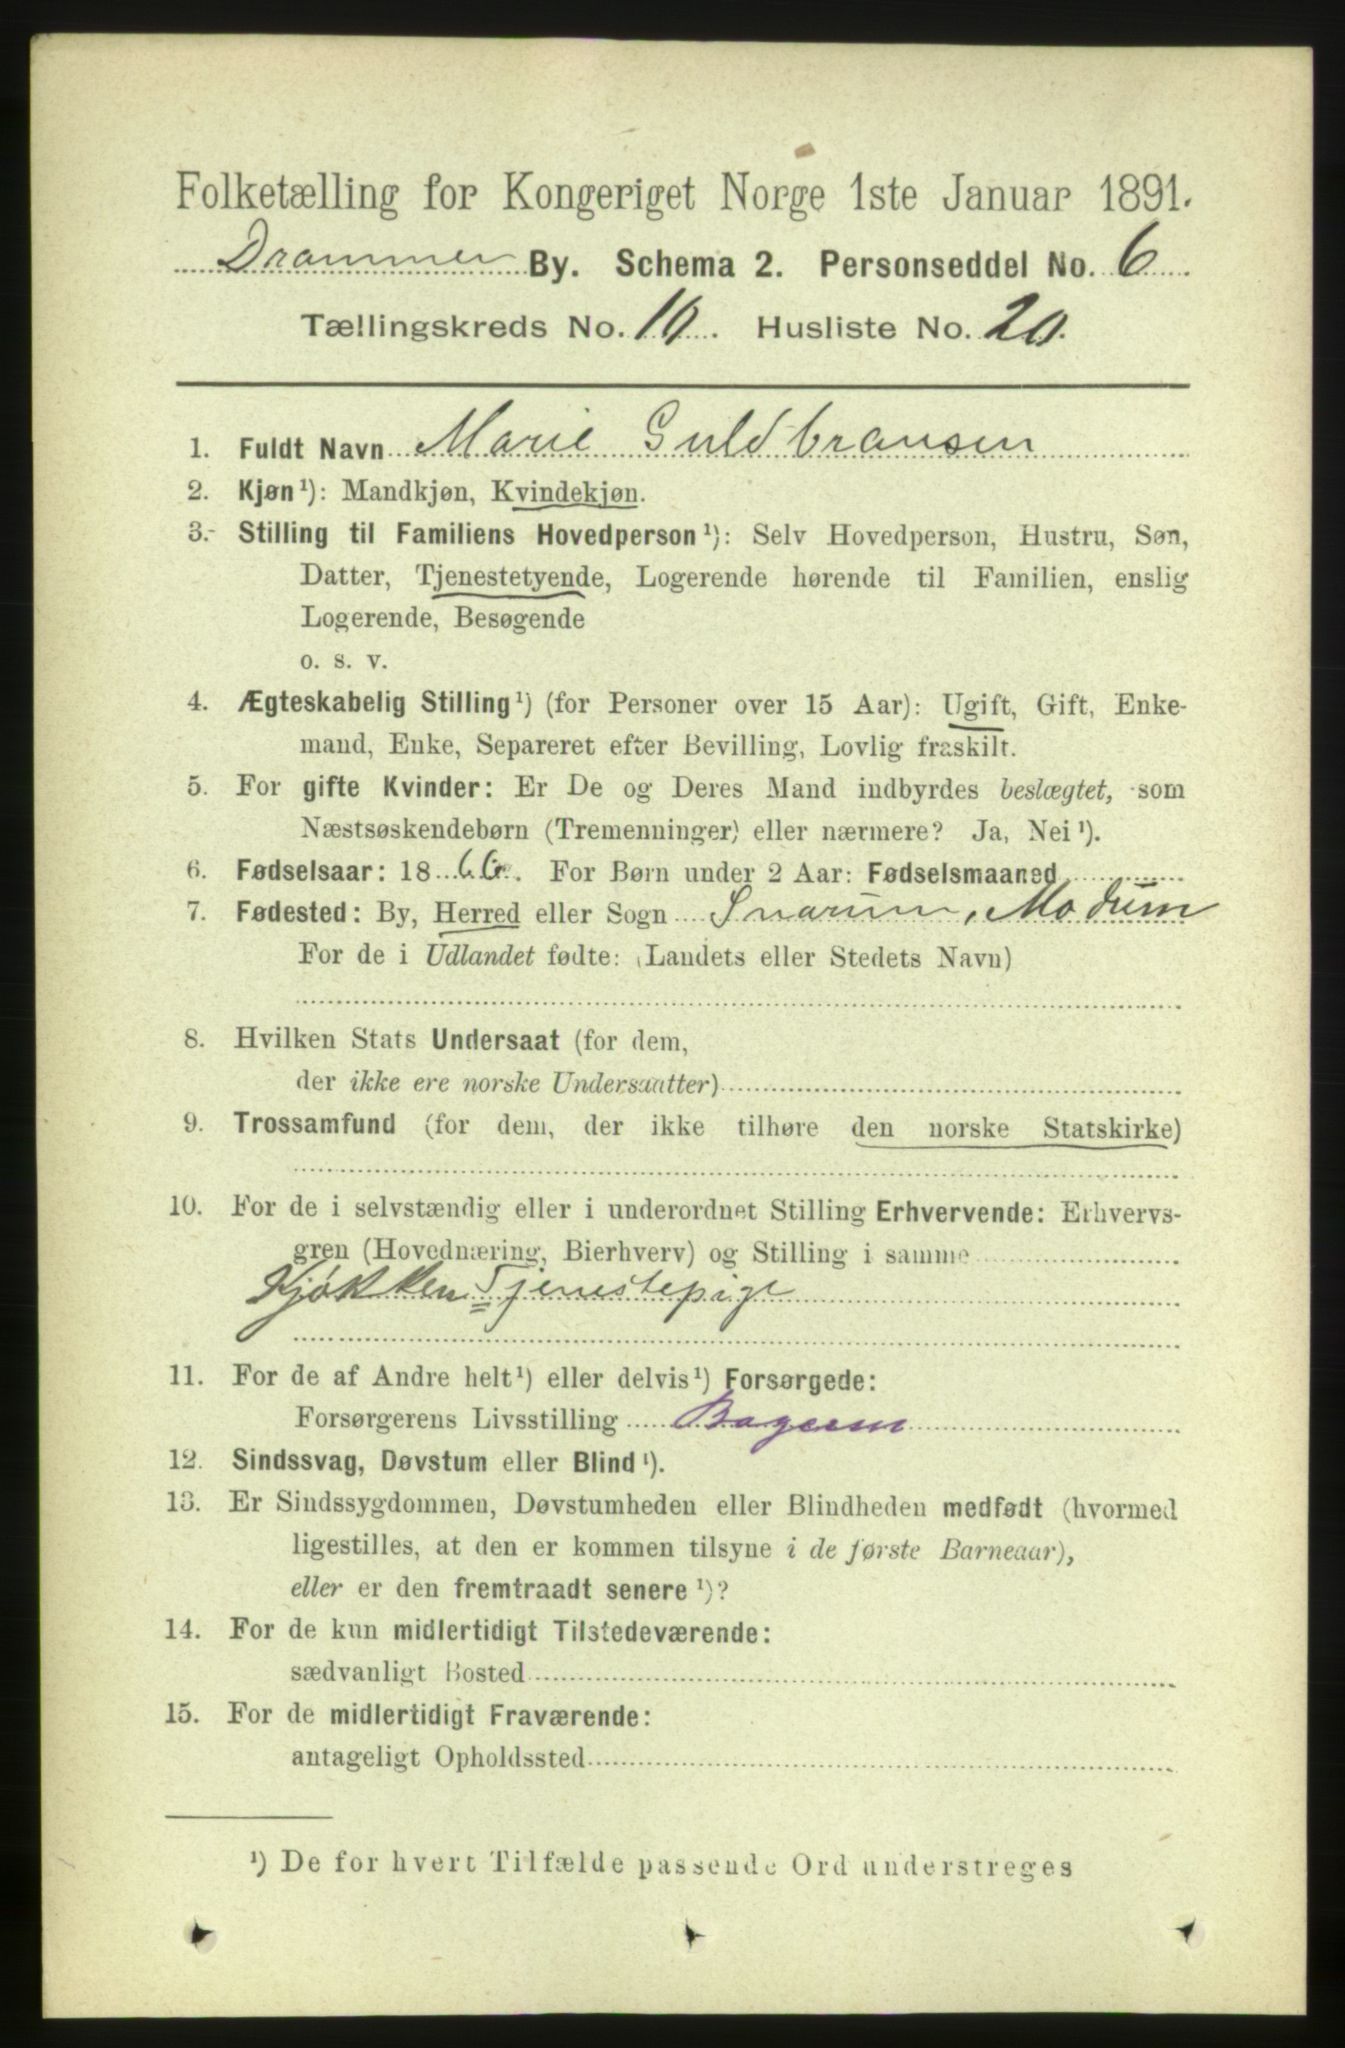 Folketælling for Kongeriget Norge 1ste Januar 1891.
Drammen By. Schema 2. Personseddel No. 6
Tællingskreds No. 10. Husliste No. 20.
1. Fuldt Navn Marie Guldbransen
2. Kjøn¹): Mandkjøn, Kvindekjøn.
3. Stilling til Familiens Hovedperson¹): Selv Hovedperson, Hustru, Søn,
Datter, Tjenestetyende, Logerende hørende til Familien, enslig
Logerende, Besøgende
o. s. v.
4. Ægteskabelig Stilling¹) (for Personer over 15 Aar): Ugift, Gift, Enke-
mand, Enke, Separeret efter Bevilling, Lovlig fraskilt.
5. For gifte Kvinder: Er De og Deres Mand indbyrdes beslægtet, som
Næstsøskendebørn (Tremenninger) eller nærmere? Ja, Nei¹).
6. Fødselsaar: 1866. For Børn under 2 Aar: Fødselsmaaned
7. Fødested: By, Herred eller Sogn Snarum, Modum
For de i Udlandet fødte: (Landets eller Stedets Navn)
8. Hvilken Stats Undersaat (for dem,
der ikke ere norske Undersaatter)
9. Trossamfund (for dem, der ikke tilhøre den norske Statskirke)
10. For de i selvstændig eller i underordnet Stilling Erhvervende: Erhvervs-
gren (Hovednæring, Bierhverv) og Stilling i samme
Kjøkken=Tjenestepige
11. For de af Andre helt¹) eller delvis¹) Forsørgede:
Forsørgerens Livsstilling
12. Sindssvag, Døvstum eller Blind¹).
13. Er Sindssygdommen, Døvstumheden eller Blindheden medfødt (hvormed
ligestilles, at den er kommen tilsyne i de første Barneaar),
eller er den fremtraadt senere¹)?
14. For de kun midlertidigt Tilstedeværende:
sædvanligt Bosted
15. For de midlertidigt Fraværende:
antageligt Opholdssted
¹) De for hvert Tilfælde passende Ord understreges